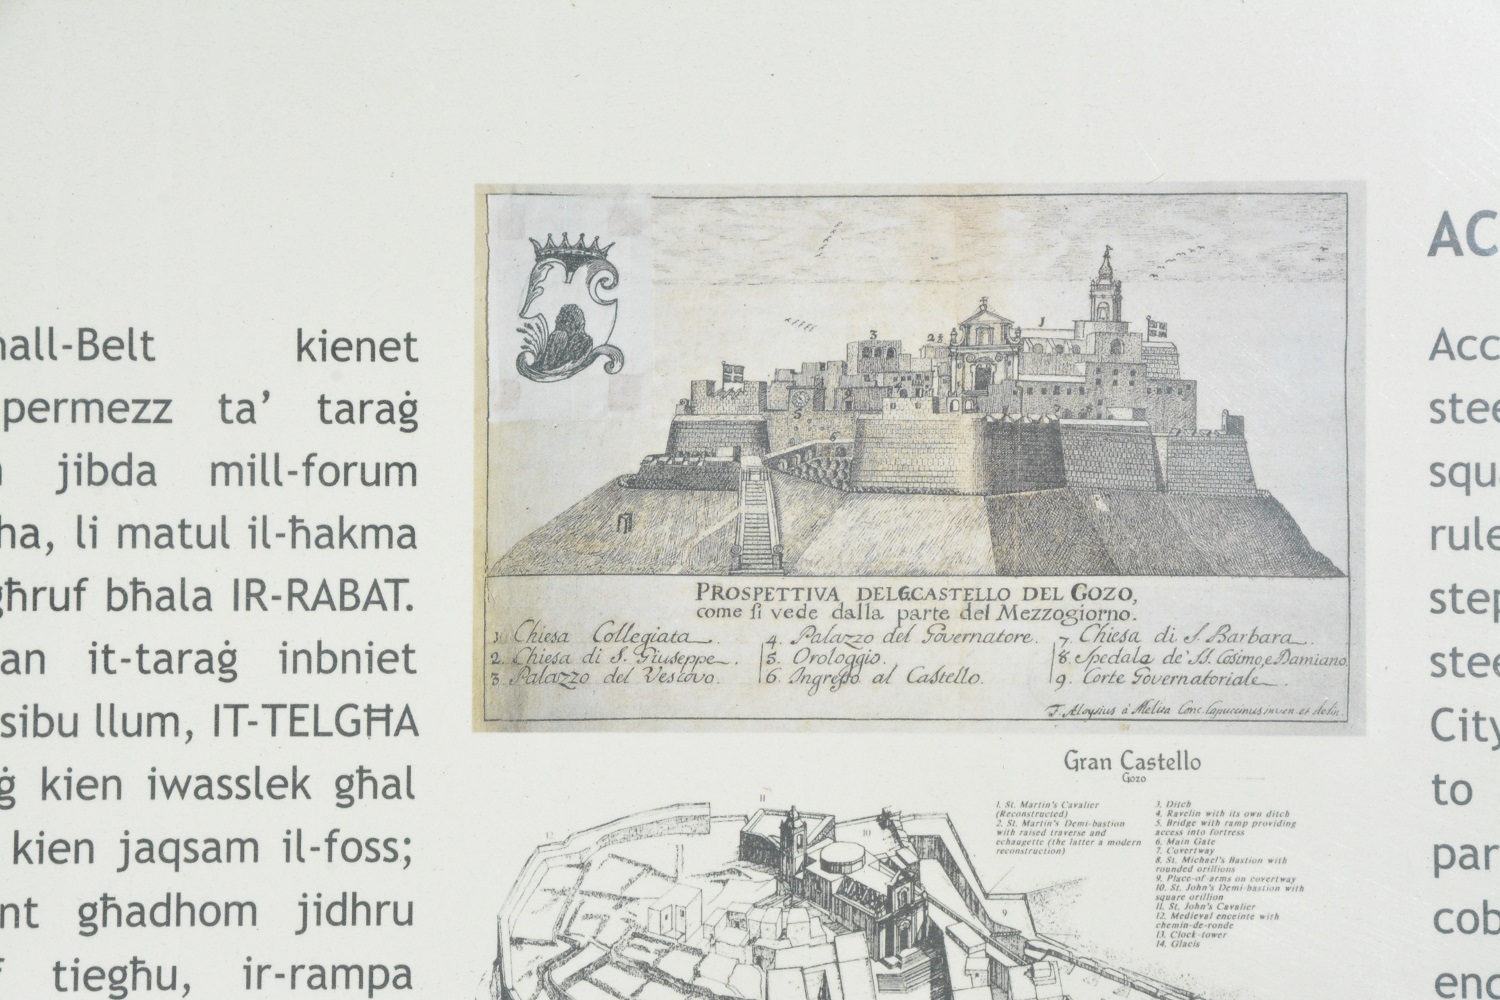 kienet
permezz ta' taraġ
jibda mill-forum
li matul il-ħakma
bħala IR-RABAT.
it-taraġ inbniet
llum, IT-TELGĦA
kien iwasslek għal
kien jaqsam il-foss;
għadhom jidhru
tiegħu, ir-rampa
3
2
1
5
6
7
PROSPETTIVA DEL G CASTELLO DEL GOZO,
come si vede dalla parte del Mezzogiorno.
1. Chiesa Collegiata.
2. Chiesa di S. Giuseppe.
3. Palazzo del Vescovo.
4. Palazzo del Governatore.
5. Orologgio.
6. Ingresso al Castello.
7. Chiesa di S. Barbara.
8. Spedale de' SS. Cosimo, e Damiano.
9. Corte Governatoriale.
F. Aloysius à Melita Conc. Capuccinus inven. et delin.
Gran Castello
Gozo
1. St. Martin's Cavalier
(Reconstructed)
2. St. Martin's Demi-bastion
with raised traverse and
echaugette (the latter a modern
reconstruction)
3. Ditch
4. Ravelin with its own ditch
5. Bridge with ramp providing
access into fortress
6. Main Gate
7. Covertway
8. St. Michael's Bastion with
rounded orillions
9. Place-of-arms on covertway
10. St. John's Demi-bastion with
square orillion
11. St. John's Cavalier
12. Medieval enceinte with
chemin-de-ronde
13. Clock-tower
14. Glacis
11
12
10
9
AC
Acc
stee
squa
rule
step
stee
City
to
par
cob
enc